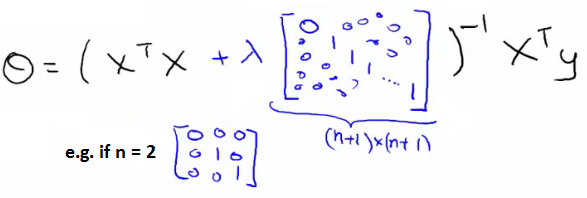 Θ = ( XᵀX + λ [ 0 0 0 0 0 1 0 0 1 0 0 1 0 0 ⋱ 1 ] )⁻¹ Xᵀy
(n+1)×(n+1)
e.g. if n = 2 [ 0 0 0
0 1 0
0 0 1 ]